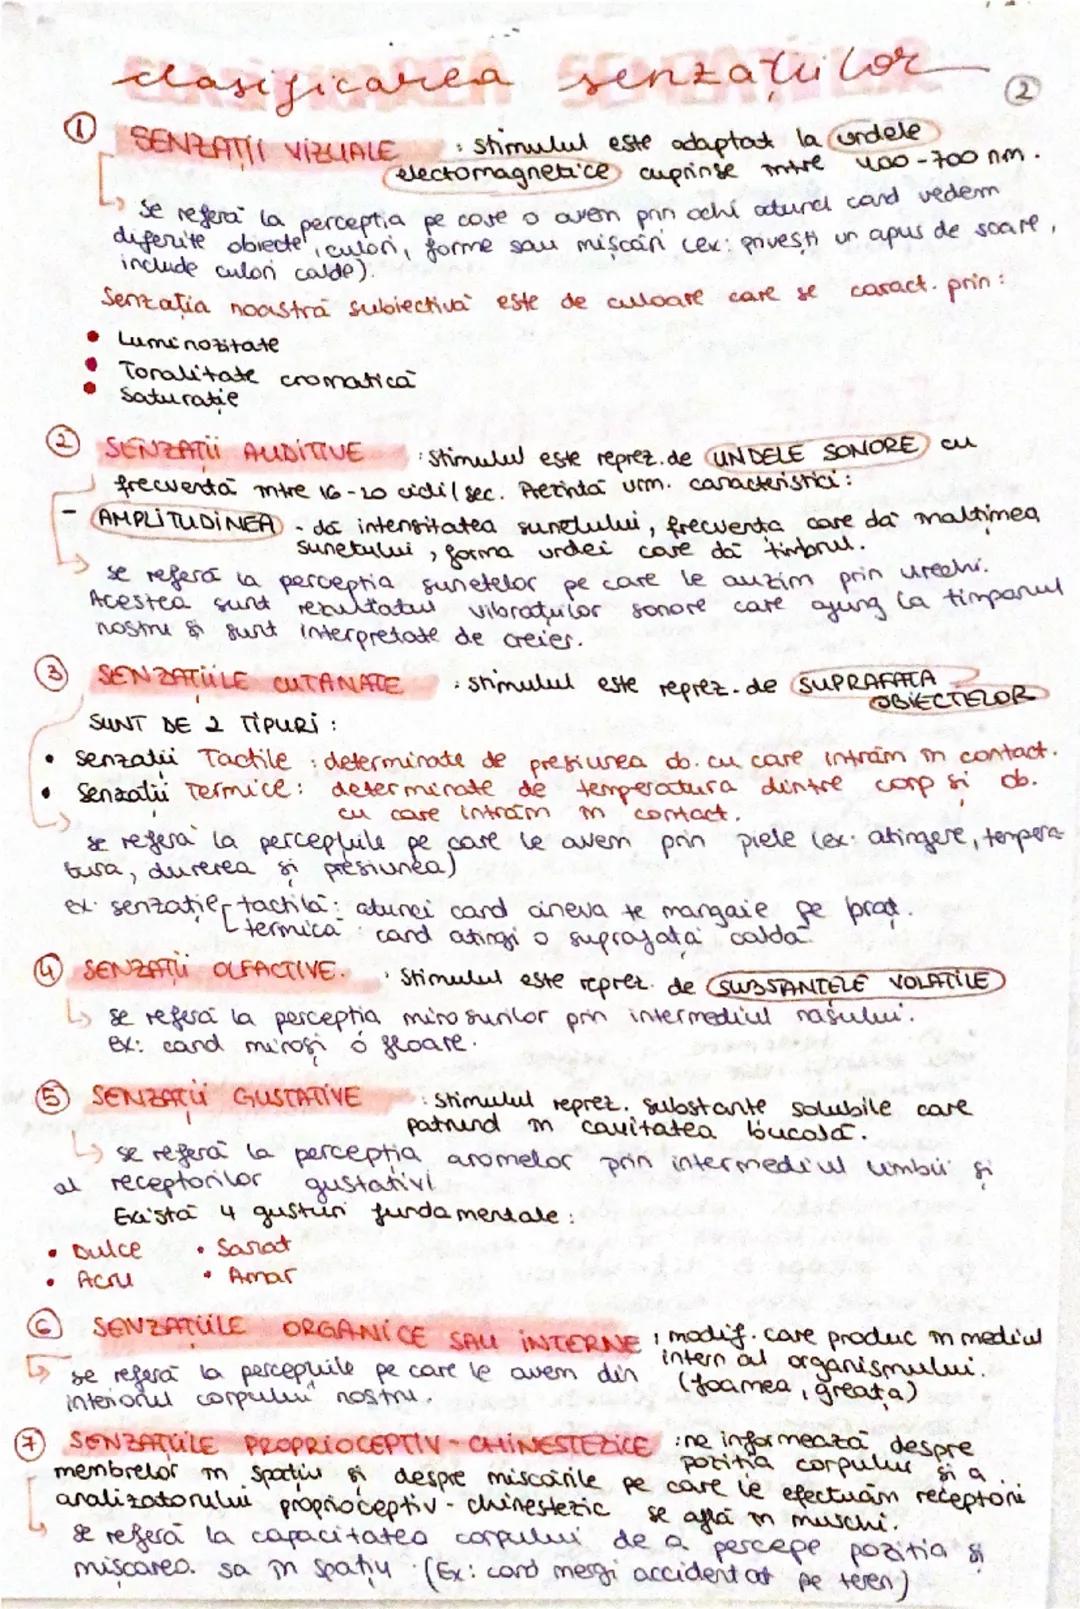 clasificarea senzațiilor
2
1 SENZAȚII VIZUALE : stimulul este adaptat la undele
electomagnetice cuprinse intre 400-700 nm.
↳ se referă la percepția pe care o avem prin ochi atunci cand vedem
diferite obiecte, culori, forme sau mișcări (ex: privești un apus de soare,
include culori calde).
Senzația noastră subiectivă este de culoare care se caract. prin:
• Luminozitate
• Tonalitate cromatică
• Saturație
2 SENZAȚII AUDITIVE : stimulul este reprez. de UNDELE SONORE cu
frecventă intre 16-20 cicli/sec. Prezintă urm. caracteristici:
- AMPLITUDINEA - dă intensitatea sunetului, frecvența care dă inaltimea
sunetului, forma undei care dă timbrul.
↳ se referă la percepția sunetelor pe care le auzim prin urechi.
Acestea sunt rezultatul vibrațiilor sonore care ajung la timpanul
nostru și sunt interpretate de creier.
3 SENZAȚIILE CUTANATE : stimulul este reprez. de SUPRAFAȚA
OBIECTELOR
SUNT DE 2 TIPURI :
• senzații Tactile : determinate de presiunea ob. cu care intrăm in contact.
• senzații Termice : determinate de temperatura dintre corp si ob.
cu care intrăm in contact.
↳ se referă la percepțiile pe care le avem prin piele (ex: atingere, tempera-
tura, durerea și presiunea)
ex. senzație tactilă : atunci cand cineva te mangaie pe braț.
termică : cand atingi o suprafață caldă
4 SENZAȚII OLFACTIVE. : Stimulul este reprez. de SUBSTANTELE VOLATILE
↳ se referă la percepția mirosurilor prin intermediul nașului.
ex: cand miroși o floare.
5 SENZAȚII GUSTATIVE : stimulul reprez. substante solubile care
patrund in cavitatea bucală.
↳ se referă la percepția aromelor prin intermediul limbii și
al receptorilor gustativi
Există 4 gusturi fundamentale :
• Dulce • Sarat
• Acru • Amar
6 SENZAȚIILE ORGANICE SAU INTERNE : modif. care produc in mediul
intern al organismului.
↳ se referă la percepțiile pe care le avem din (foamea, greața)
interiorul corpului nostru.
7 SENZAȚIILE PROPRIOCEPTIV-CHINESTEZICE : ne informează despre
poziția corpului și a
membrelor in spațiu și despre mișcările pe care le efectuăm receptorii
analizatorului proprioceptiv-chinestezic se află in muschi.
↳ se referă la capacitatea corpului de a percepe poziția și
mișcarea sa in spațiu. (Ex: cand mergi accidentat pe teren)